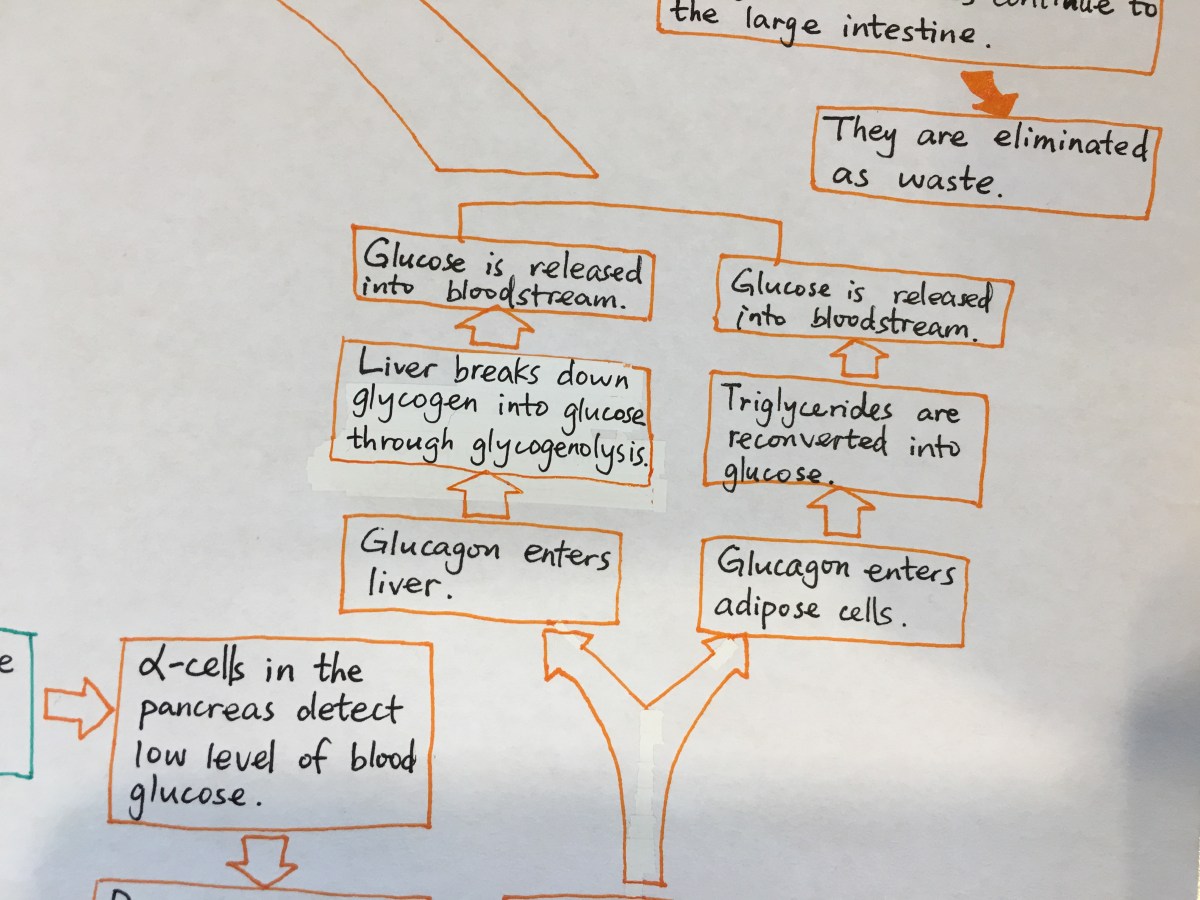 continue to
the large intestine.
They are eliminated
as waste.
Glucose is released
into bloodstream.
Glucose is released
into bloodstream.
Liver breaks down
glycogen into glucose
through glycogenolysis.
Triglycerides are
reconverted into
glucose.
Glucagon enters
liver.
Glucagon enters
adipose cells.
e
α-cells in the
pancreas detect
low level of blood
glucose.